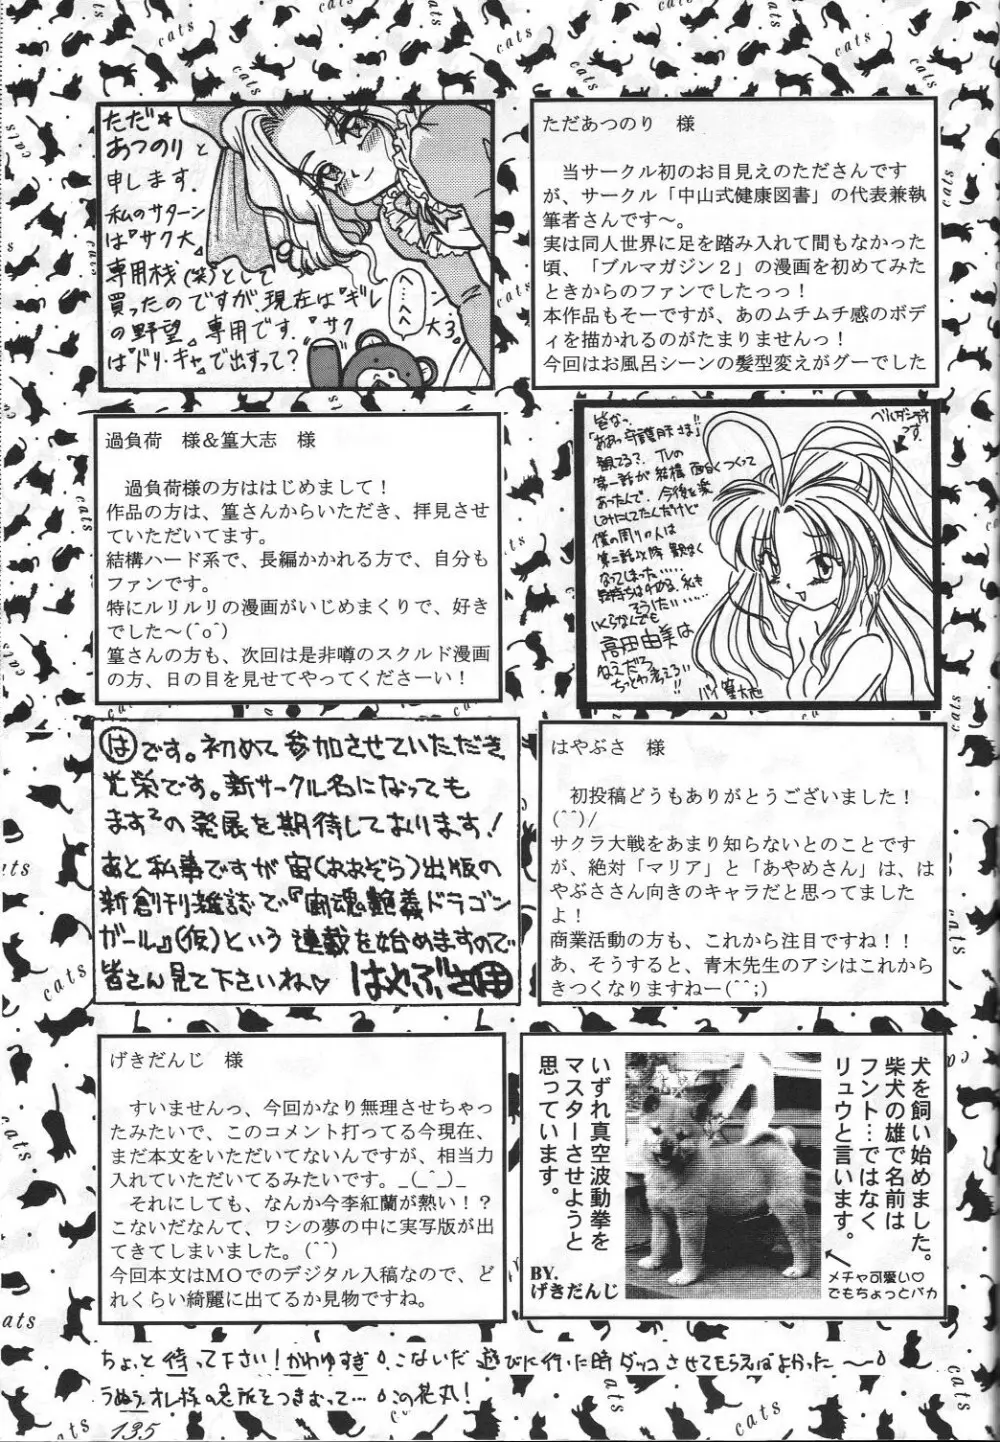 ただ★
あつのりと
申します.
私のサターン
は『サク大』
専用桟(笑)として
買ったのですが、現在は『ギレン
の野望』専用です.『サク大3』
は『ドリ・キャ』で出すって?
へ…へへ
ただあつのり　様
当サークル初のお目見えのたださんです
が、サークル「中山式健康図書」の代表兼執
筆者さんです～。
実は同人世界に足を踏み入れて間もなかった
頃、「ブルマガジン２」の漫画を初めてみた
ときからのファンでしたっっ！
本作品もそーですが、あのムチムチ感のボデ
ィを描かれるのがたまりませんっ！
今回はお風呂シーンの髪型変えがグーでした
過負荷　様＆篁大志　様
過負荷様の方ははじめまして！
作品の方は、篁さんからいただき、拝見させ
ていただいてます。
結構ハード系で、長編かかれる方で、自分も
ファンです。
特にルリルリの漫画がいじめまくりで、好き
でした～(^o^)
篁さんの方も、次回は是非噂のスクルド漫画
の方、日の目を見せてやってくださーい！
皆なっ、
『ああっ守護月天さま!!』
観てる?. TVの
第一話が結構面白くつくって
あったんで、今後を楽
しみにしてたんだけど
僕の周りの人は
第二話以降観なく
なってしまった……
気持ちは分かる、私も
そうしたい……
いくらなんでも
高田由美は
ねえだろ
ちっとわ考えろい!!
バイ篁大志
ベルダンディー
です。
㋩です。初めて参加させていただき
光栄です。新サークル名になっても
ます²の発展を期待しております!
あと私事ですが宙(おおぞら)出版の
新創刊雑誌で『宙魂艶義ドラゴン
ガール』(仮)という連載を始めますので
皆さん見て下さいね♡ はやぶさ
はやぶさ　様
初投稿どうもありがとうございました！
(^^)/
サクラ大戦をあまり知らないとのことです
が、絶対「マリア」と「あやめさん」は、は
やぶささん向きのキャラだと思ってました
よ！
商業活動の方も、これから注目ですね！！
あ、そうすると、青木先生のアシはこれから
きつくなりますねー(^^;)
げきだんじ　様
すいませんっ、今回かなり無理させちゃっ
たみたいで、このコメント打ってる今現在、
まだ本文をいただいてないんですが、相当力
入れていただいてるみたいです。_(_^_)_
それにしても、なんか今李紅蘭が熱い！？
こないだなんて、ワシの夢の中に実写版が出
てきてしまいました。(^^)
今回本文はＭＯでのデジタル入稿なので、ど
れくらい綺麗に出てるか見物ですね。
犬を飼い始めました。
柴犬の雄で名前は
フント…ではなく
リュウと言います。
メチャ可愛い♡
でもちょっとバカ
いずれ真空波動拳を
マスターさせようと
思っています。
BY.
げきだんじ
ちょっと待って下さい！かわゆすぎ。こないだ遊びに行った時ダッコさせてもらえばよかった～。
うぬぅオレ様の急所をつきおって…。この花丸！
135
cats